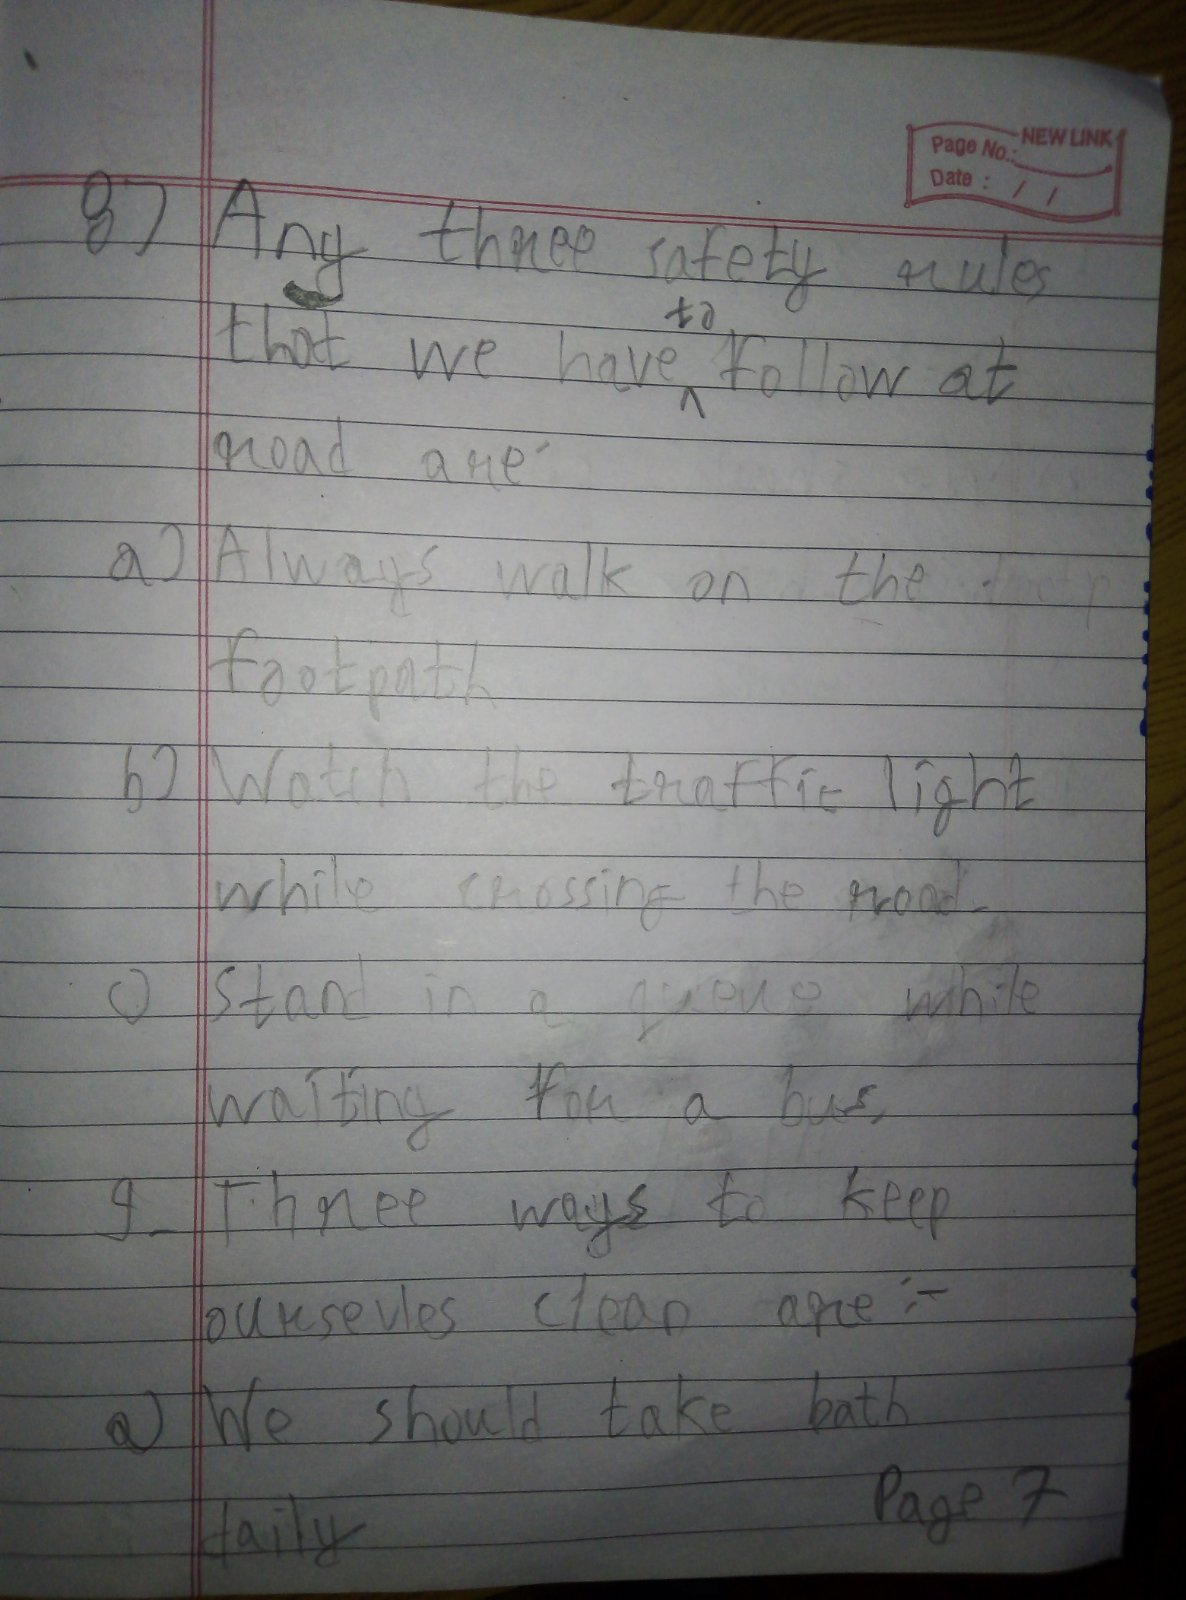 NEW LINK
Page No.:
Date : / /
8) Any three safety rules
that we have to follow at
road are-
a) Always walk on the
footpath
b) Watch the traffic light
while crossing the road.
c) Stand in a queue while
waiting for a bus.
9- Three ways to keep
oursevles clean are :-
a) We should take bath
daily
Page 7